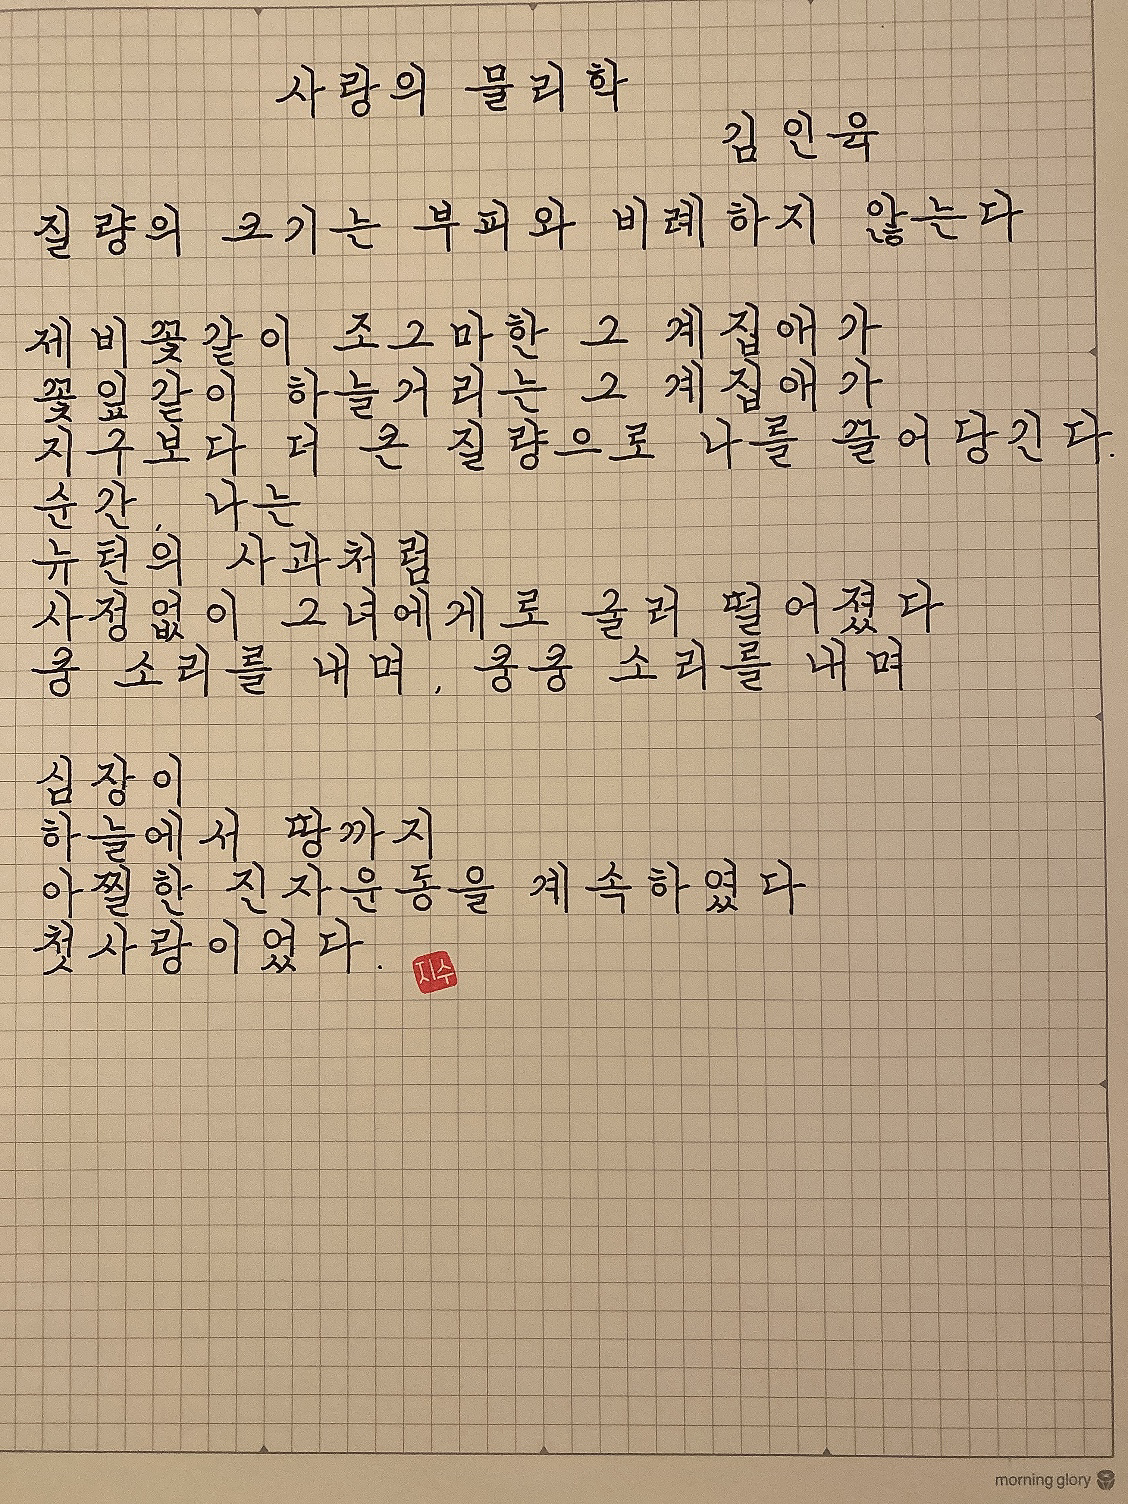 사랑의 물리학
김인육
질량의 크기는 부피와 비례하지 않는다
제비꽃같이 조그마한 그 계집애가
꽃잎같이 하늘거리는 그 계집애가
지구보다 더 큰 질량으로 나를 끌어당긴다.
순간, 나는
뉴턴의 사과처럼
사정없이 그녀에게로 굴러 떨어졌다
쿵 소리를 내며, 쿵쿵 소리를 내며
심장이
하늘에서 땅까지
아찔한 진자운동을 계속하였다
첫사랑이었다.
지수
morning glory